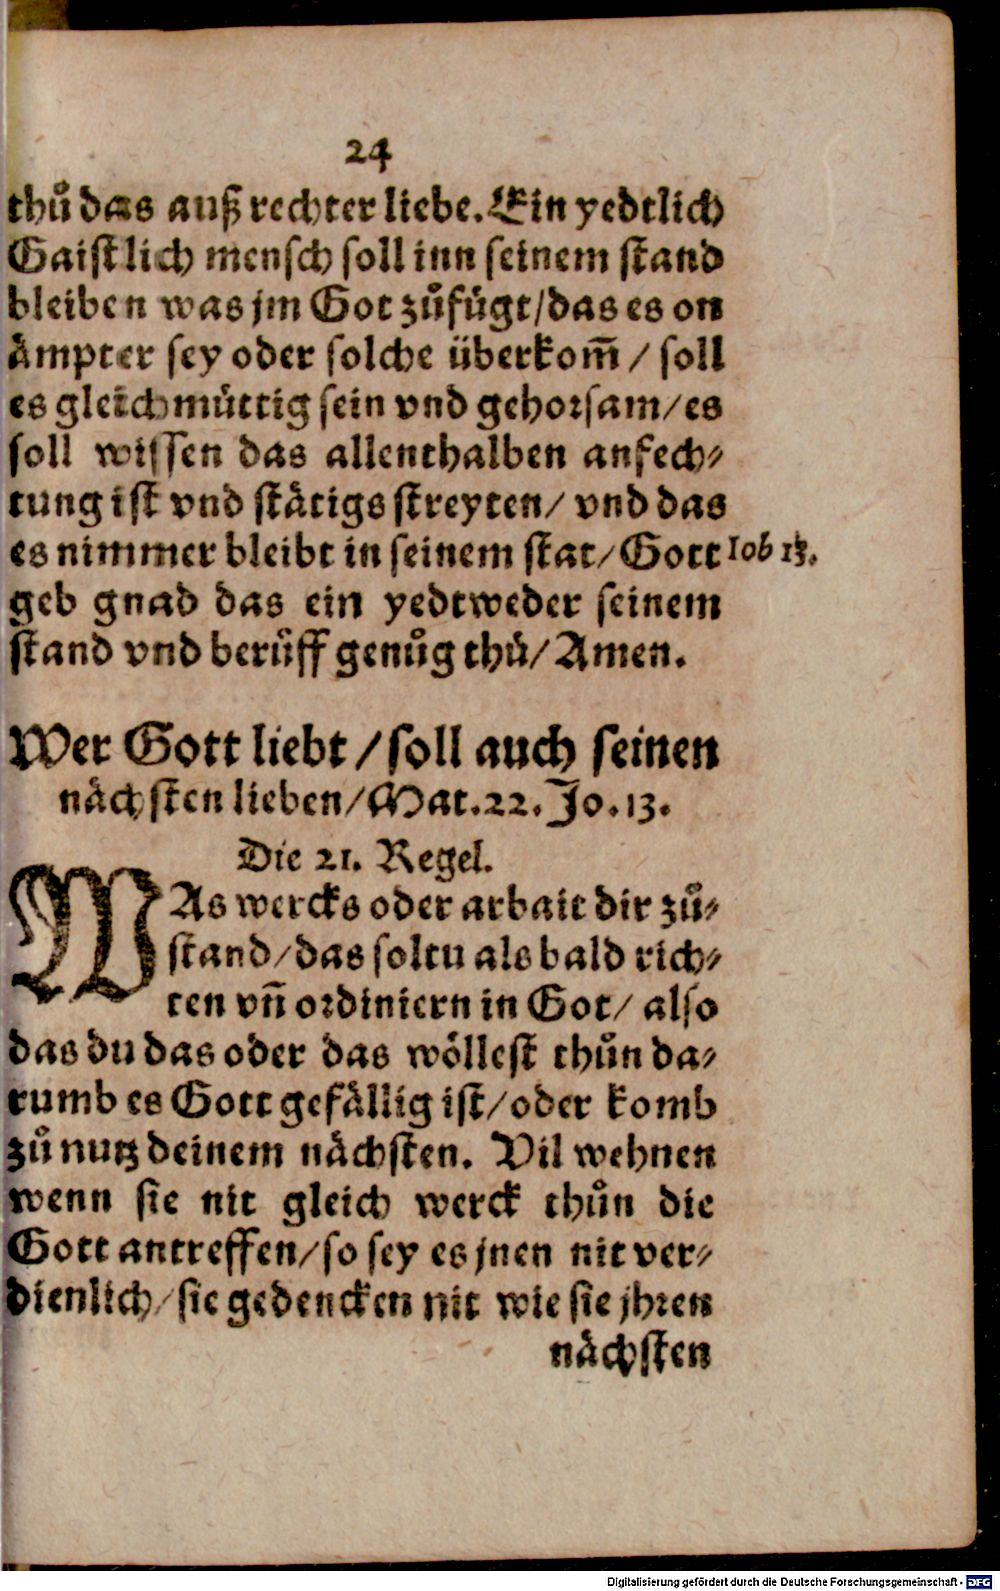 24
thuͦ das auß rechter liebe. Ein yedtlich
Gaistlich mensch soll inn seinem stand
bleiben was jm Got zuͦfuͤgt/das es on
aͤmpter sey oder solche überkom̃ / soll
es gleichmuͤttig sein vnd gehorsam/es
soll wissen das allenthalben anfech⸗
tung ist vnd staͤtigs streyten/ vnd das
es nimmer bleibt in seinem stat/ Gott Iob
geb gnad das ein yedtweder seinem
stand vnd beruͤff genuͦg thuͤ/ Amen.
Wer Gott liebt /soll auch seinen
naͤchsten lieben/Mat.22. Jo.13.
Die 21. Regel.
WAs wercks oder arbait dir zuͦ⸗
stand/das soltu als bald rich⸗
ten vñ ordiniern in Got/ also
das du das oder das woͤllest thuͦn da⸗
rumb es Gott gefaͤllig ist/oder komb
zuͦ nutz deinem naͤchsten. Vil wehnen
wenn sie nit gleich werck thuͦn die
Gott antreffen/so sey es jnen nit ver⸗
dienlich/sie gedencken nit wie sie jhren
naͤchsten
Digitalisierung gefördert durch die Deutsche Forschungsgemeinschaft - DFG